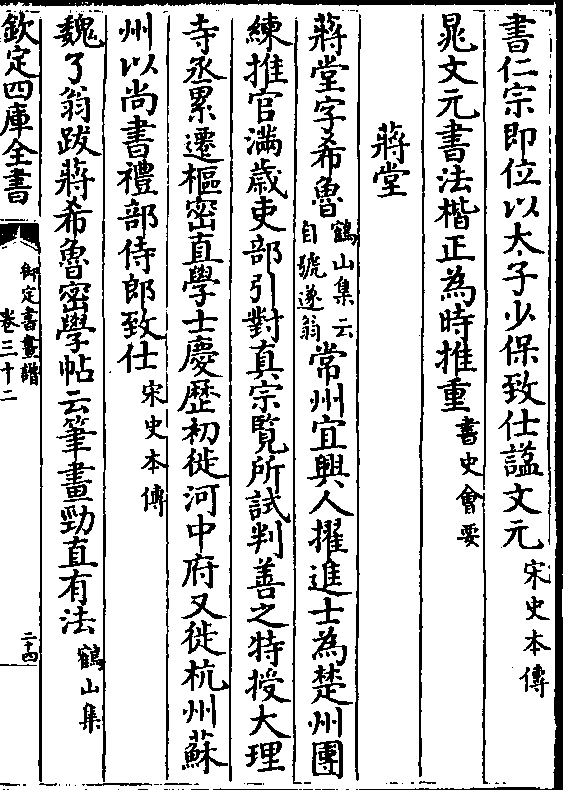 書仁宗即位以太子少保致仕諡文元宋史本傳
晁文元書法楷正為時推重書史會要
蔣堂
蔣堂字希魯鶴山集云自號遂翁常州宜興人擢進士為楚州團
練推官滿歲吏部引對真宗覽所試判善之特授大理
寺丞累遷樞密直學士慶歴初徙河中府又徙杭州蘇
州以尚書禮部侍郎致仕宋史本傳
魏了翁跋蔣希魯密學帖云筆畫勁直有法鶴山集
欽定四庫全書
御定書畫譜
卷三十二
二十四